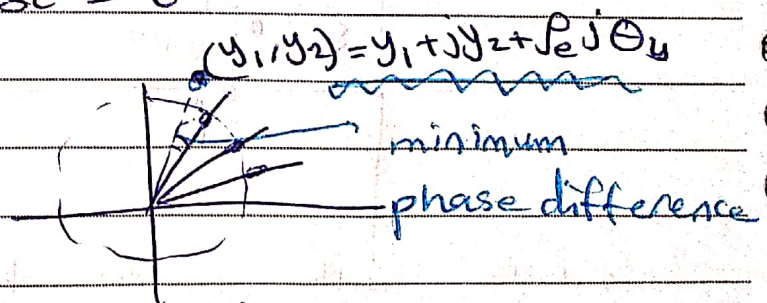 (y₁,y₂) = y₁+jy₂+ρe^jθy
minimum
phase difference